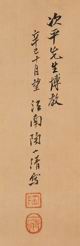 次平先生博教
辛巳十月望江南陶一清寫